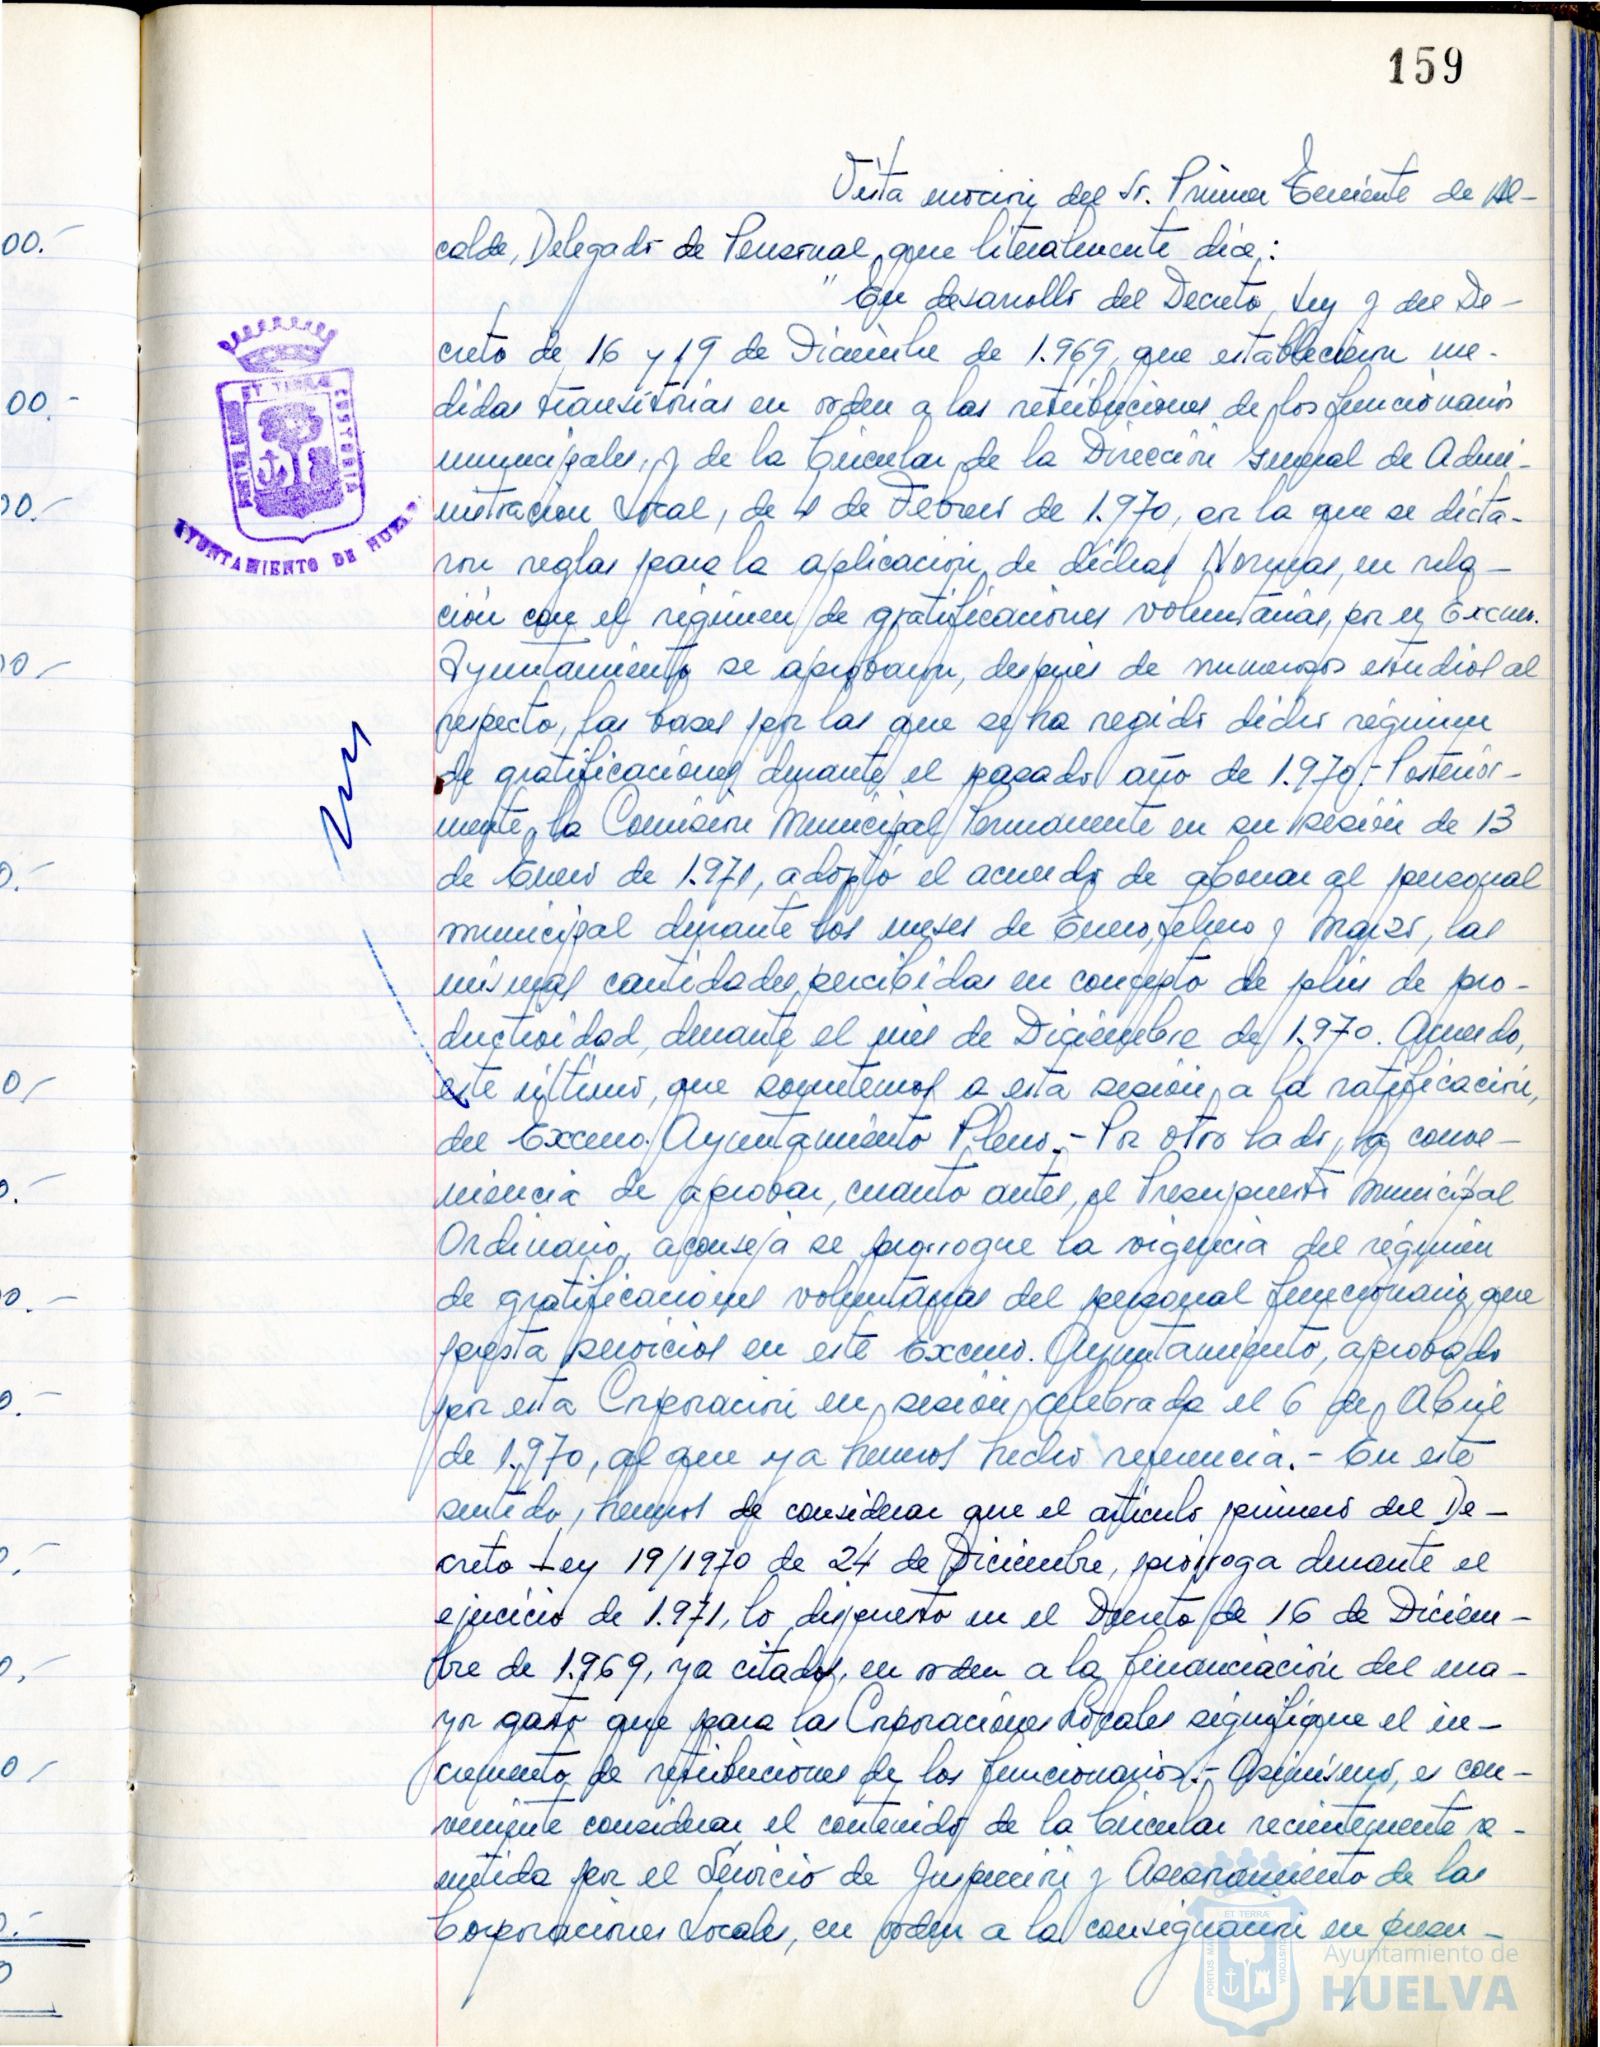 159
Vista moción del Sr. Primer Teniente de Al-
calde, Delegado de Personal, que literalmente dice:
"En desarrollo del Decreto Ley y del De-
creto de 16 y 19 de Diciembre de 1.969, que establecieron me-
didas transitorias en orden a las retribuciones de los funcionarios
municipales, y de la Circular de la Dirección General de Admi-
nistración Local, de 4 de Febrero de 1.970, en la que se dicta-
ron reglas para la aplicación de dichas Normas, en rela-
ción con el régimen de gratificaciones voluntarias, por el Excmo.
Ayuntamiento se aprobaron, después de numerosos estudios al
respecto, las bases por las que se ha regido dicho régimen
de gratificaciones durante el pasado año de 1.970.- Posterior-
mente, la Comisión Municipal Permanente en su sesión de 13
de Enero de 1.971, adoptó el acuerdo de abonar al personal
municipal durante los meses de Enero, febrero y Marzo, las
mismas cantidades percibidas en concepto de plus de pro-
ductividad, durante el mes de Diciembre de 1.970. Acuerdo,
este último, que sometemos a esta sesión, a la ratificación,
del Excmo. Ayuntamiento Pleno.- Por otro lado, la conve-
niencia de aprobar, cuanto antes, el Presupuesto Municipal
Ordinario, aconseja se prorrogue la vigencia del régimen
de gratificaciones voluntarias del personal funcionario, que
presta servicios en este Excmo. Ayuntamiento, aprobado
por esta Corporación en sesión celebrada el 6 de Abril
de 1.970, al que ya hemos hecho referencia.- En este
sentido, hemos de considerar que el artículo primero del De-
creto Ley 19/1970 de 24 de Diciembre, prorroga durante el
ejercicio de 1.971, lo dispuesto en el Decreto de 16 de Diciem-
bre de 1.969, ya citados, en orden a la financiación del ma-
yor gasto que para las Corporaciones Locales signifique el in-
cremento de retribuciones de los funcionarios.- Asimismo, es con-
veniente considerar el contenido de la Circular recientemente re-
mitida por el Servicio de Inspección y Asesoramiento de las
Corporaciones Locales, en orden a la consignación en presu-
ET TERRÆ CUSTODIA
AYUNTAMIENTO DE HUELVA
00.-
00.-
00.-
00,-
0.-
0,-
0.-
00.-
0.-
0.-
0,-
0,-
0.-
0
PORTUS MARIS ET TERRÆ CUSTODIA
Ayuntamiento de
HUELVA